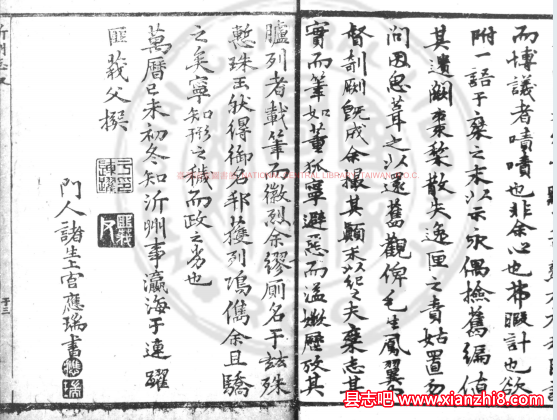 而博議者嘖嘖也非余心也弗暇計也欽
附一語于稾之末以示永偶檢舊編值
其遺闕棗黎散失逸匣之責姑置勿
問因忍葺之以還舊觀俾毛生鳳翼
督剞劂旣成余撮其顛末以紀之夫稾志其
實而筆如董狐寧避惡而溢嫩歷攷其
臚列者載筆而徽烈余缪廁名于玆殊
慙珠玉狀得御名邦獲列鴻儁余且驕
之矣寧知形之穢而政之秀也
萬曆己未初冬知沂州事瀛海于連躍
匪莪父撰
門人諸生上官應瑞書
沂州志又
于三
县志吧 www.xianzhi8.com